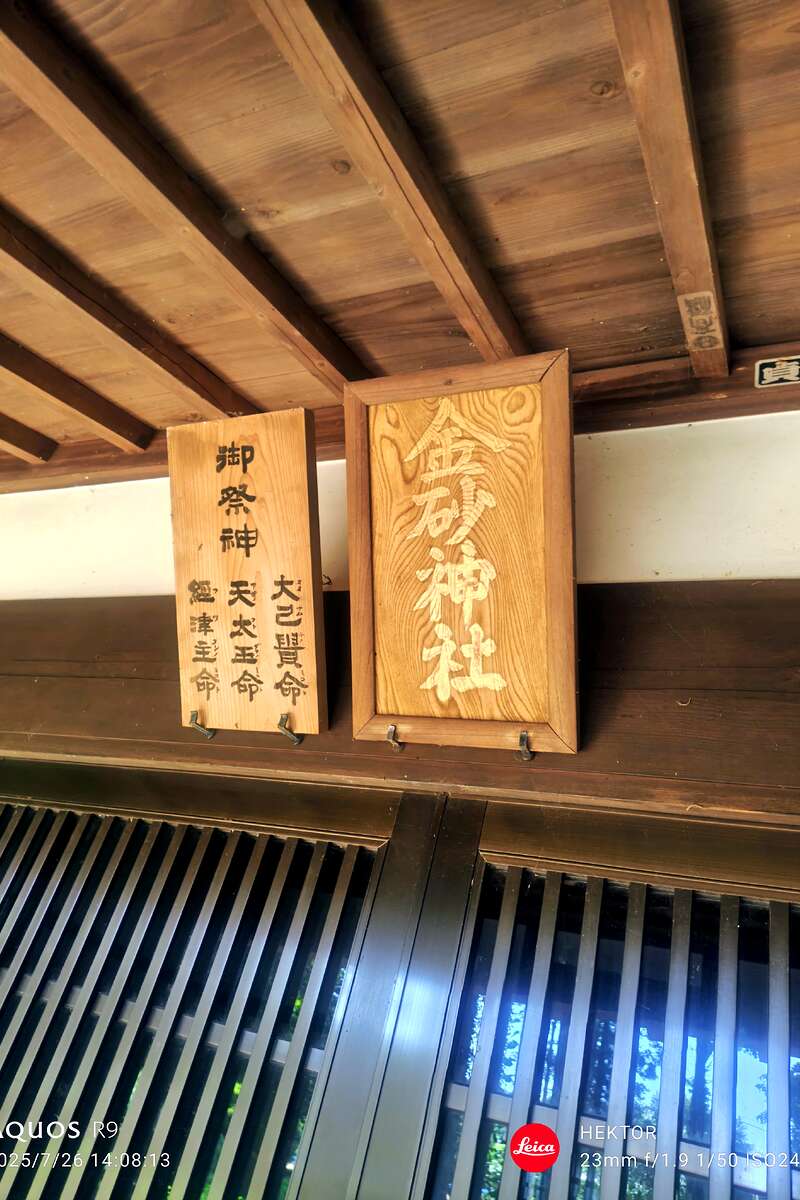 金砂神社
御祭神
大己貴命
天太玉命
経津主命
AQUOS R9
2025/7/26 14:08:13
Leica
HEKTOR
23mm f/1.9 1/50 ISO24